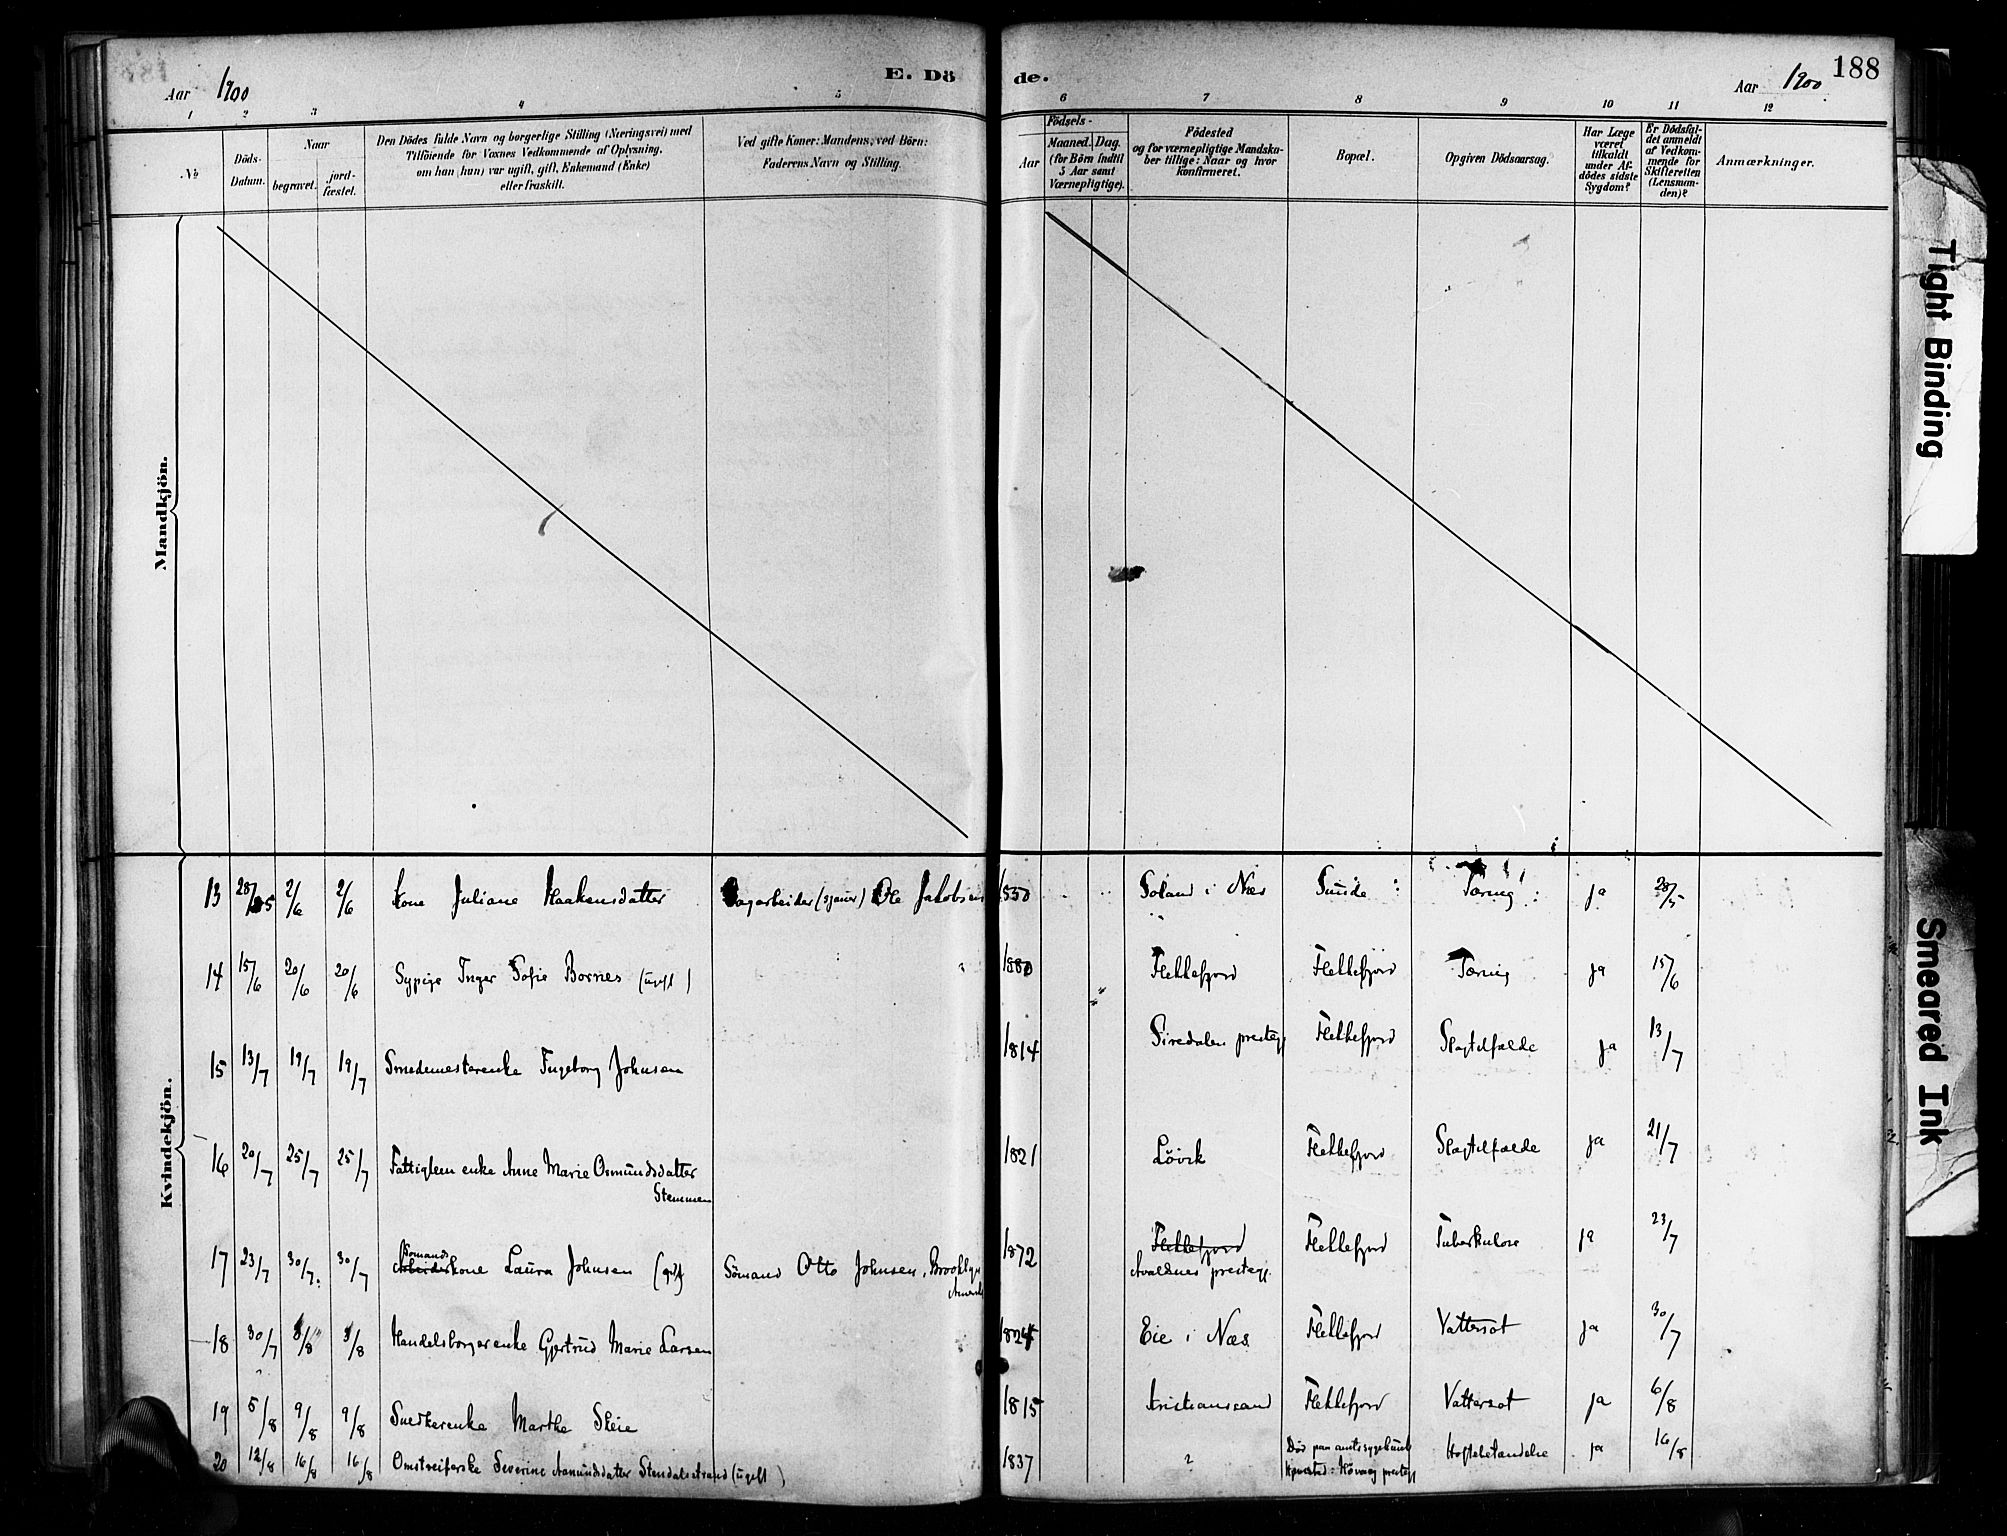 Aar 1900
E. Dö
de.
Aar 1900
188
1 2 3 4 5
6 7 8 9 10 11 12
№
Döds-
Datum.
Naar
begravet.
jord-
fæstet.
Den Dödes fulde Navn og borgerlige Stilling (Næringsvei) med
Tilföiende for Voxnes Vedkommende af Oplysning,
om han (hun) var ugift, gift, Enkemand (Enke)
eller fraskilt.
Ved gifte Koner: Mandens, ved Börn:
Faderens Navn og Stilling.
Födsels-
Aar
Maaned. Dag.
(for Börn indtil
5 Aar samt
Værnepligtige).
Födested
og for værnepligtige Mandska-
ber tillige: Naar og hvor
konfirmeret.
Bopæl.
Opgiven Dödsaarsag.
Har Læge
været
tilkaldt
under Af-
dödes sidste
Sygdom?
Er Dödsfal-
det anmeldt
af Vedkom-
mende for
Skifteretten
(Lensman-
den)?
Anmærkninger.
Mandkjön.
Kvindekjön.
13 28/5 2/6 2/6 Kone Juliane Haakensdatter Dagarbeider (sjauer) Ole Jakobsen 1850 Soland i Næs Sunde Tæring ja 28/5
14 15/6 20/6 20/6 Sypige Inger Sofie Bornes (ugift) 1880 Flekkefjord Flekkefjord Tæring ja 15/6
15 13/7 19/7 19/7 Smedemesterenke Ingeborg Johnsen 1814 Siredalen prestegj Flekkefjord Slagtilfælde ja 13/7
16 20/7 25/7 25/7 Fattiglem enke Anne Marie Osmundsdatter 1821 Løvik Flekkefjord Slagtilfælde ja 21/7
Stemmen
17 23/7 30/7 30/7 Sømandskone Laura Johnsen (gift) Sömand Otto Johnsen, Brooklyn 1872 Flekkefjord Flekkefjord Tuberkulose ja 23/7
Amerik
Avaldsnes prestegj.
18 30/7 3/8 3/8 Handelsborgerenke Gjertrud Marie Larsen 1824 Eie i Næs Flekkefjord Vattersot ja 30/7
19 5/8 9/8 9/8 Snedkerenke Marthe Skeie 1815 Kristianssand Flekkefjord Vattersot ja 6/8
20 12/8 16/8 16/8 Omstreiferske Severine Aanundsdatter Stendalsstrand (ugift) 1837 ? Død paa amtssygehuset Hoftebetændelse ja 16/8
Hjemsted: Høvaag prestegj
Tight Binding
Smeared Ink